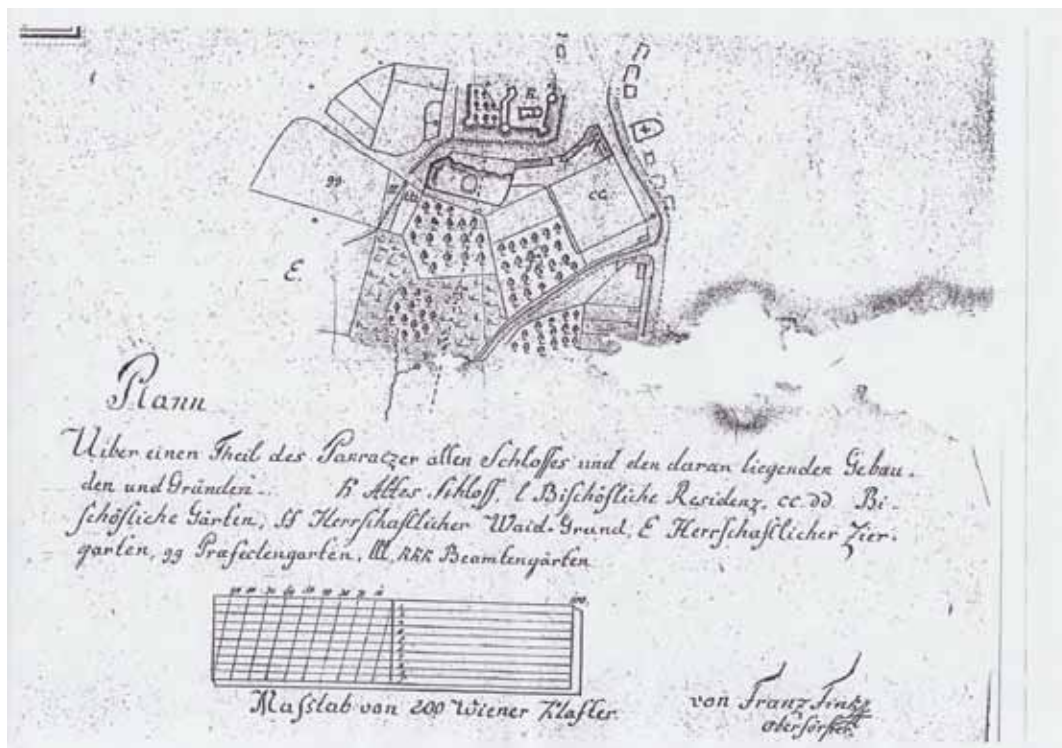 k
gg
cc
E
Plann
Uiber einen Theil des Pakraczer alten Schlosses und den daran liegenden Gebau-
den und Gründen. k Altes Schloss, l Bischöfliche Residenz, cc. dd Bi-
schöfliche Gärten, ff Herrschaftlicher Waid-Grund, E Herrschaftlicher Zier-
garten, gg Præfectengarten, lll, kkk Beamtengärten
Maßstab von 200 Wiener Klafter.
von Franz
Oberförster